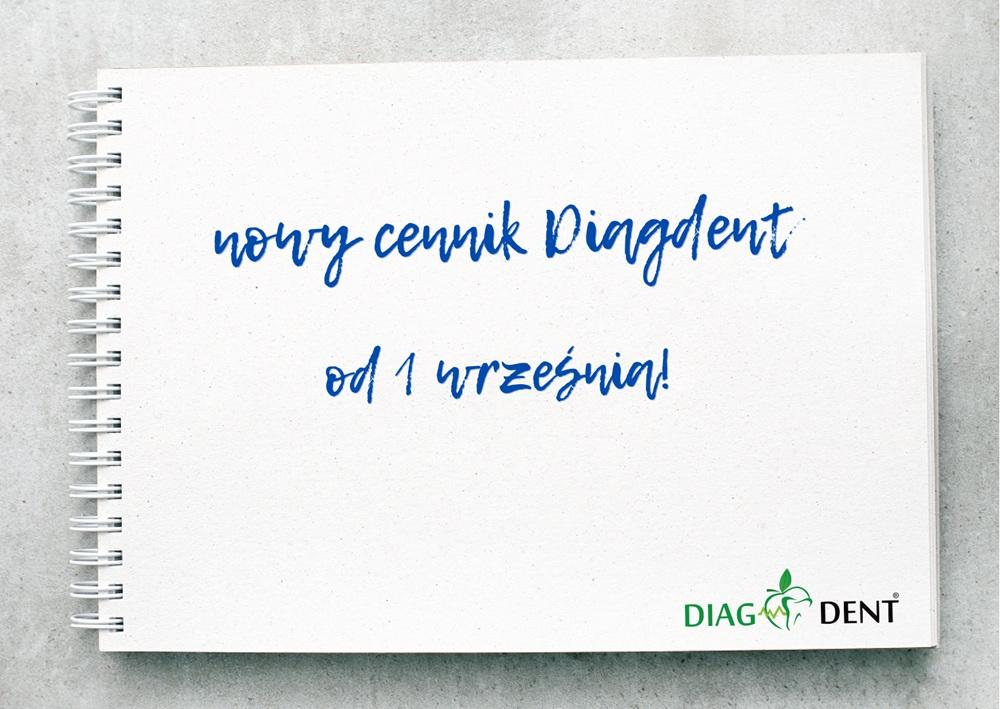 nowy cennik Diagdent
od 1 września!
DIAG DENT®